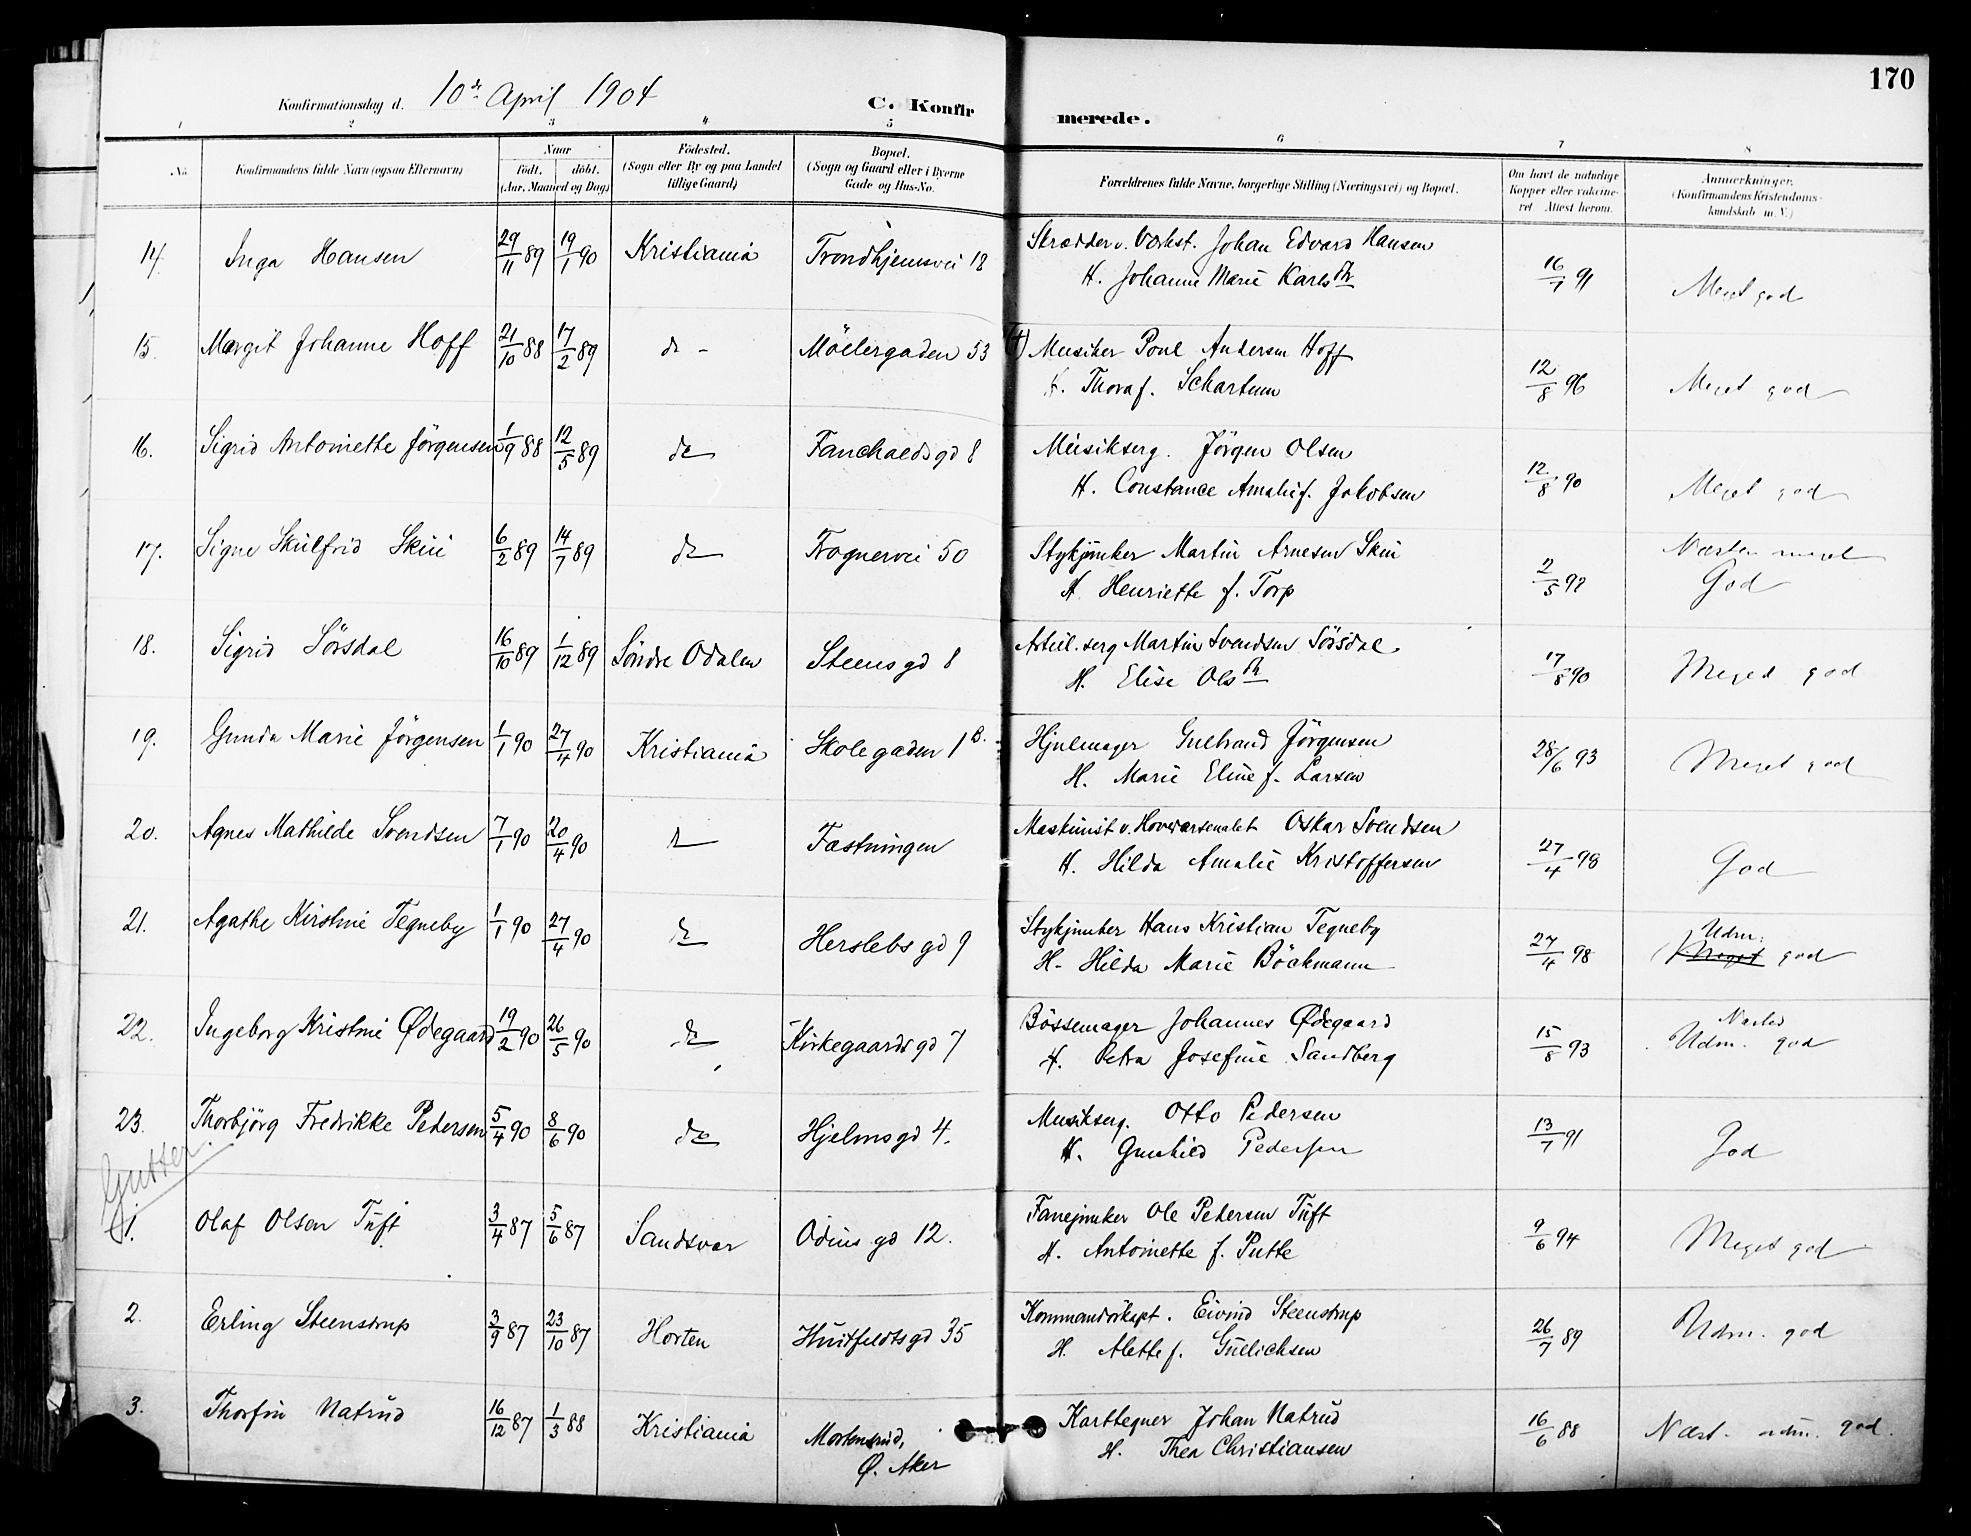 170
Konfirmationsdag d. 10de April 1904
C. Konfirmerede.
1 2 3 4 5 6 7 8
No. Konfirmandens fulde Navn (ogsaa Efternavn) Naar født. døbt. (Aar, Maaned og Dag) Fødested. (Sogn eller By og paa Landet tillige Gaard) Bopæl. (Sogn og Gaard eller i Byerne Gade og Hus-No. Forældrenes fulde Navne, borgerlige Stilling (Næringsvei) og Bopæl. Om havt de naturlige Kopper eller vakcineret Attest herom. Anmærkninger. (Konfirmandens Kristendomskundskab m. V.)
14. Inga Hansen 29/11 89 19/1 90 Kristiania Trondhjemsvei 18 Skrædder v. Værkst. Johan Edvard Hansen 16/7 91 Meget god
H. Johanne Marie Karlsdtr
15. Margit Johanne Hoff 21/10 88 17/2 89 do - Möllergaden 53 (†) Musiker Poul Andersen Hoff 12/8 96 Meget god
H. Thora f. Schartum
16. Sigrid Antoinette Jörgensen 1/9 88 12/5 89 do Fauchaldsgd 8 Musikserg. Jörgen Olsen 12/8 90 Meget god
H. Constance Amalie f. Jakobsen
17. Signe Skulfrid Skui 6/2 89 14/7 89 do Frognervei 50 Stykjunker Martin Arnesen Skui 2/5 92 Næsten meget
H. Henriette f. Torp God
18. Sigrid Sörsdal 16/10 89 1/12 89 Söndre Odalen Steensgd 8 Artil. serg Martin Svendsen Sörsdal 17/8 90 Meget god
H. Elise Olsdtr
19. Gunda Marie Jörgensen 1/1 90 27/4 90 Kristiania Skolegaden 1B. Hjulmager Gulbrand Jörgensen 28/6 93 Meget god
H. Marie Eline f. Larsen
20. Agnes Mathilde Svendsen 7/1 90 20/4 90 do Fæstningen Maskinist v. Hovedarsenalet Oskar Svendsen 27/4 98 God
H. Hilda Amalie Kristoffersen
21. Agathe Kirstine Tegneby 1/1 90 27/4 90 do Herslebs gd 9 Stykjunker Hans Kristian Tegneby 27/4 98 Udm. Meget god
H. Hilda Marie Böckmann
22. Ingeborg Kristine Ødegaard 19/2 90 26/5 90 do Kirkegaardsgd 7 Bössemager Johannes Ødegaard 15/8 93 Udm. god
H. Petra Josefine Sandberg
23. Thorbjörg Fredrikke Petersen 5/4 90 8/6 90 do Hjelmsgd 4. Musikserg. Otto Pedersen 13/7 91 God
H. Gunhild Pedersen
Gutter.
1. Olaf Olsen Tuft 3/4 87 5/6 87 Sandsvær Odins gd 12. Fanejunker Ole Petersen Tuft 9/6 94 Meget god
H. Antoinette f. Putte
2. Erling Steenstrup 3/9 87 23/10 87 Horten Huitfeldtsgd 35 Kommandörkapt. Eivind Steenstrup 26/7 89 Udm. god
H. Alette f. Gullichsen
3. Thorfin Natrud 16/12 87 1/3 88 Kristiania Mortensrud, Ø. Aker Karttegner Johan Natrud 16/6 88 Næst. udm. god.
H. Thea Christiansen